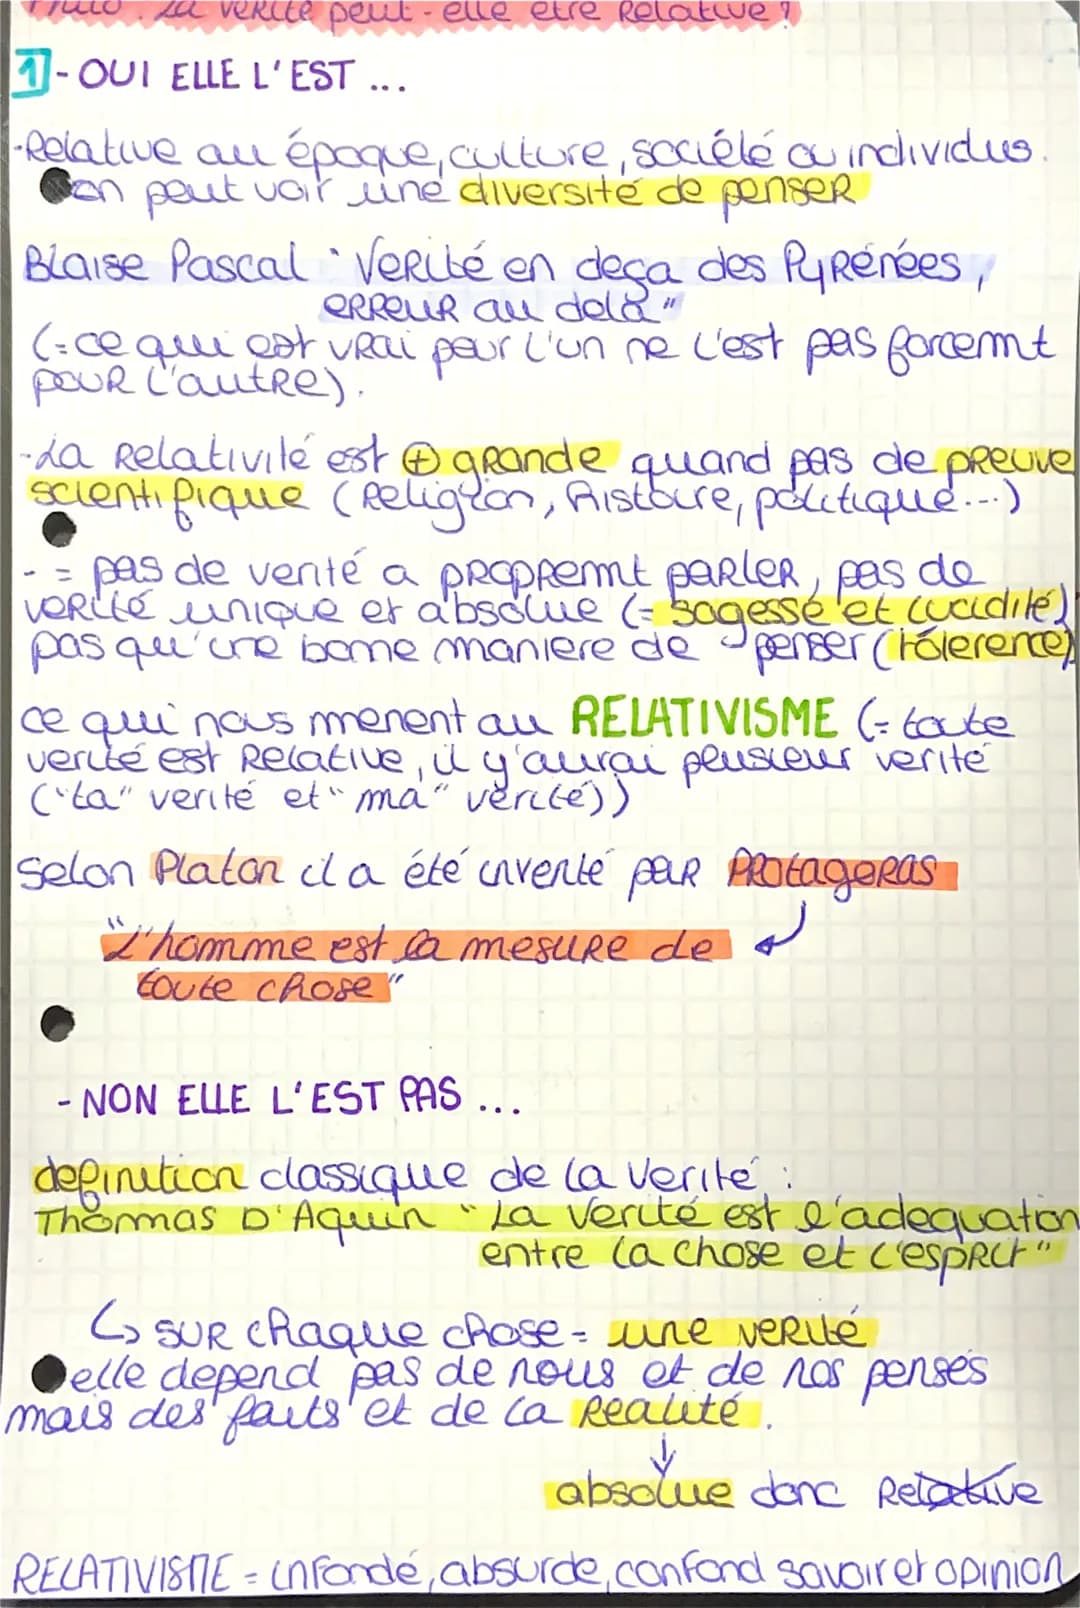 Philo : La verité peut-elle être Relative ?
1 - OUI ELLE L'EST ...
-Relative au époque, culture, société ou individus.
on peut voir une diversité de penser
Blaise Pascal "Verité en deça des Pyrénées,
erreur au delà"
(= ce qui est vrai pour l'un ne l'est pas forcemnt
pour l'autre).
-La Relativité est ⊕ grande quand pas de preuve
scientifique (Religion, histoire, politique...)
- = pas de verité a proppremnt parler, pas de
verité unique et absolue (= sagesse et lucidité)
pas qu'une bonne maniere de penser (tólerence)
ce qui nous menent au RELATIVISME (= toute
verité est Relative, il y'aurai plusieur verité
("ta" verité et "ma" vérité))
Selon Platon il a été inventé par Protageras
"L'homme est la mesure de
toute chose"
- NON ELLE L'EST PAS ...
definition classique de la verité :
Thommas D'Aquin "La verité est l'adequation
entre la chose et l'esprit"
↳ sur chaque chose = une verité
elle depend pas de nous et de nos pensés
mais des faits et de la Realité.
↓
absolue donc Relative
RELATIVISME = infondé, absurde, confond savoir et opinion